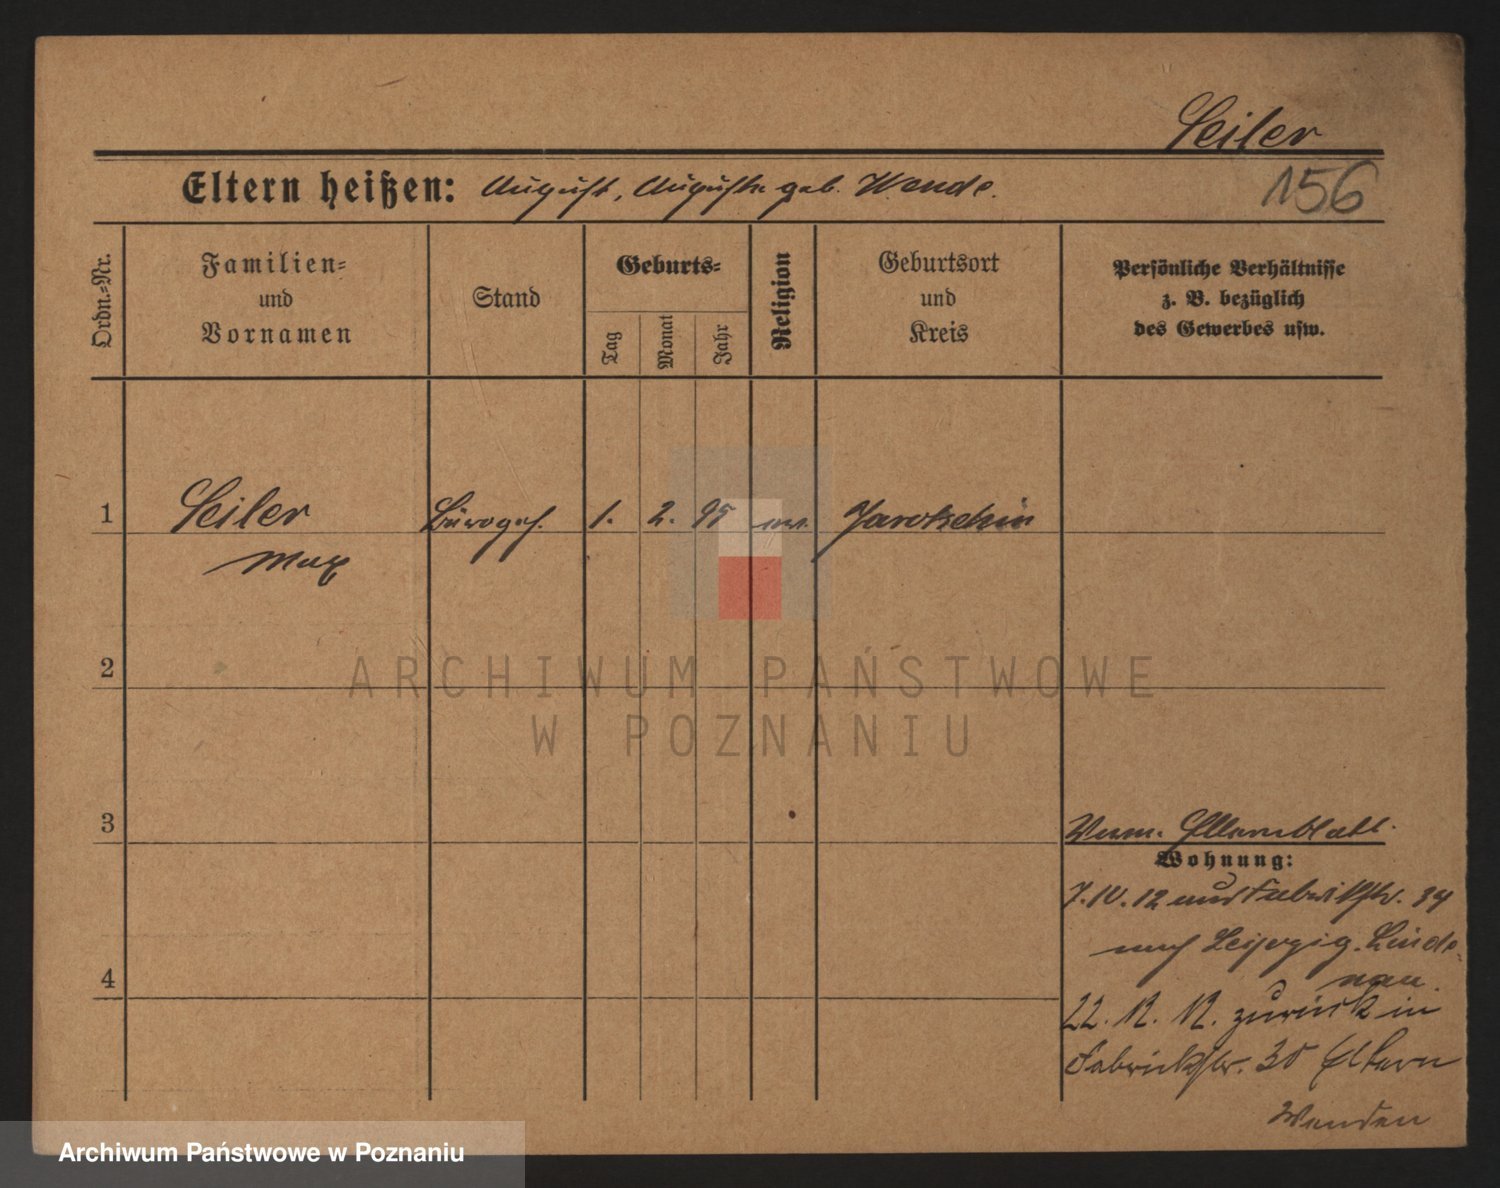 Seiler
Eltern heißen: August, Auguste geb. Wende.
156
Ordn.=Nr.
Familien=
und
Vornamen
Stand
Geburts=
Tag
Monat
Jahr
Religion
Geburtsort
und
Kreis
Persönliche Verhältnisse
z. B. bezüglich
des Gewerbes usw.
1
Seiler
Max
Bürogeh.
1.
2.
95
Jarotschin
2
3
4
Elternblatt.
Wohnung:
7. 10. 12 aus Fabrikstr. 34
nach Leipzig-Linde-
nau.
22. 12. 12. zurück in
Fabrikstr. 35 Eltern
Wenden
ARCHIWUM PAŃSTWOWE
W POZNANIU
Archiwum Państwowe w Poznaniu